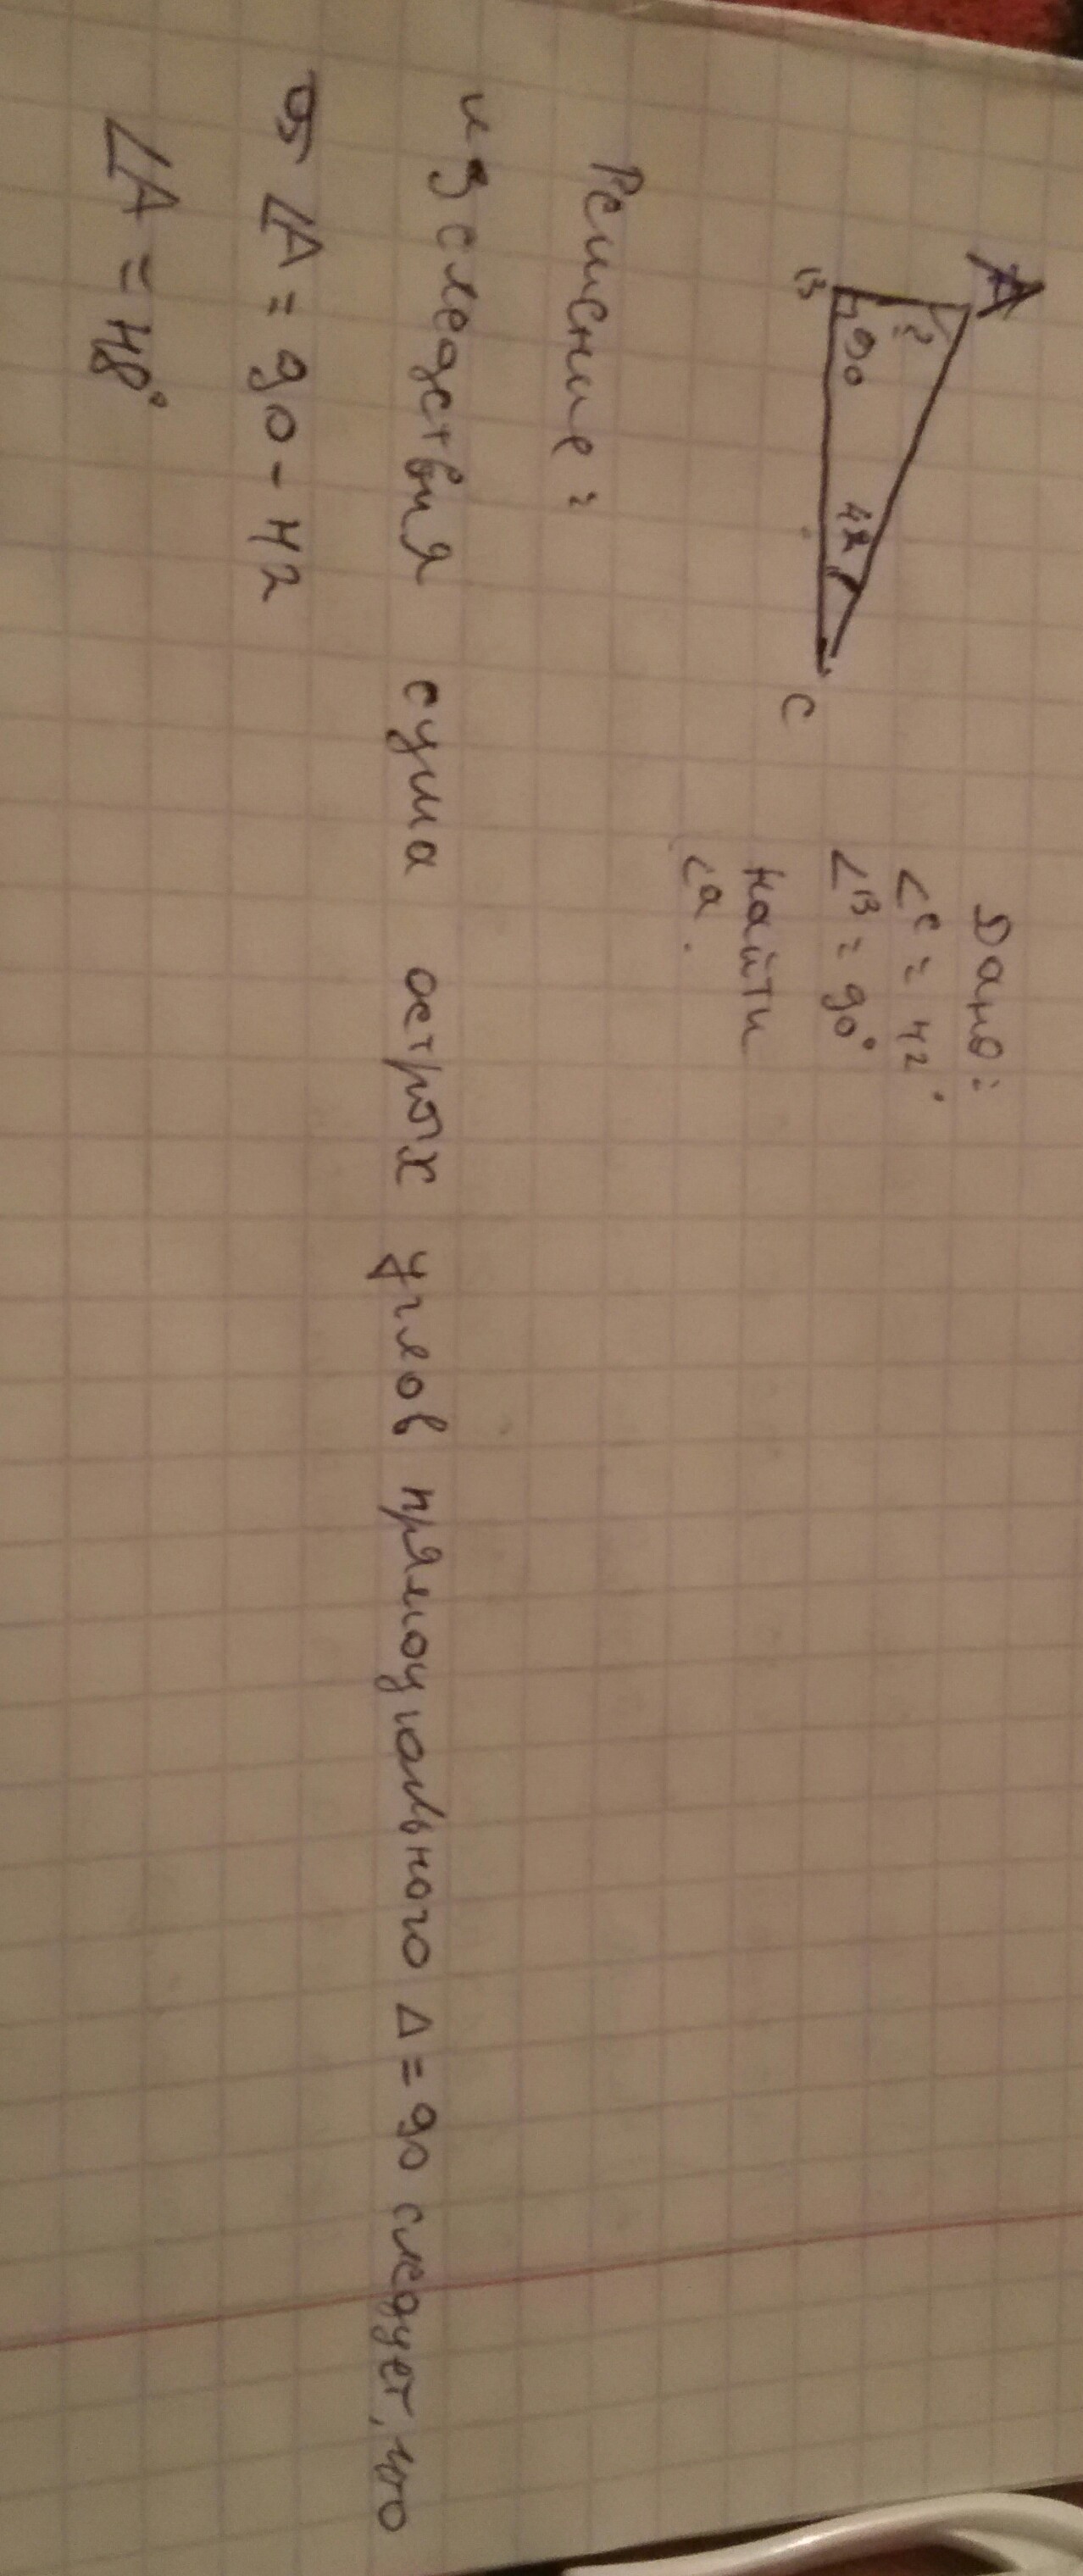 A
?
B
90
42
C
Дано:
∠C = 42°
∠B = 90°
найти
∠a.
Решение:
из следствия сума острых углов прямоугольного Δ = 90 следует, что
∠A = 90 - 42
∠A = 48°